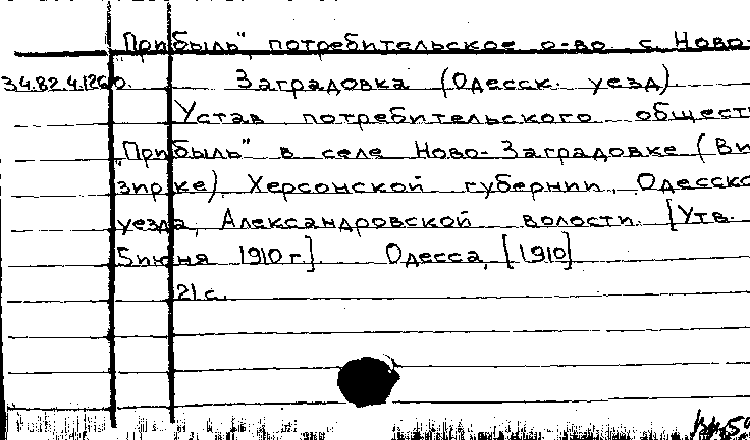 „Прибыль", потребительское о-во с. Ново-
34.82.4.1260. Заградовка (Одесск. уезд)
Устав потребительского общест
„Прибыль" в селе Ново-Заградовке (Ви
зирке) Херсонской губернии, Одесско
уезда, Александровской волости. [Утв.
5 июня 1910 г.] Одесса, [1910]
21 с.